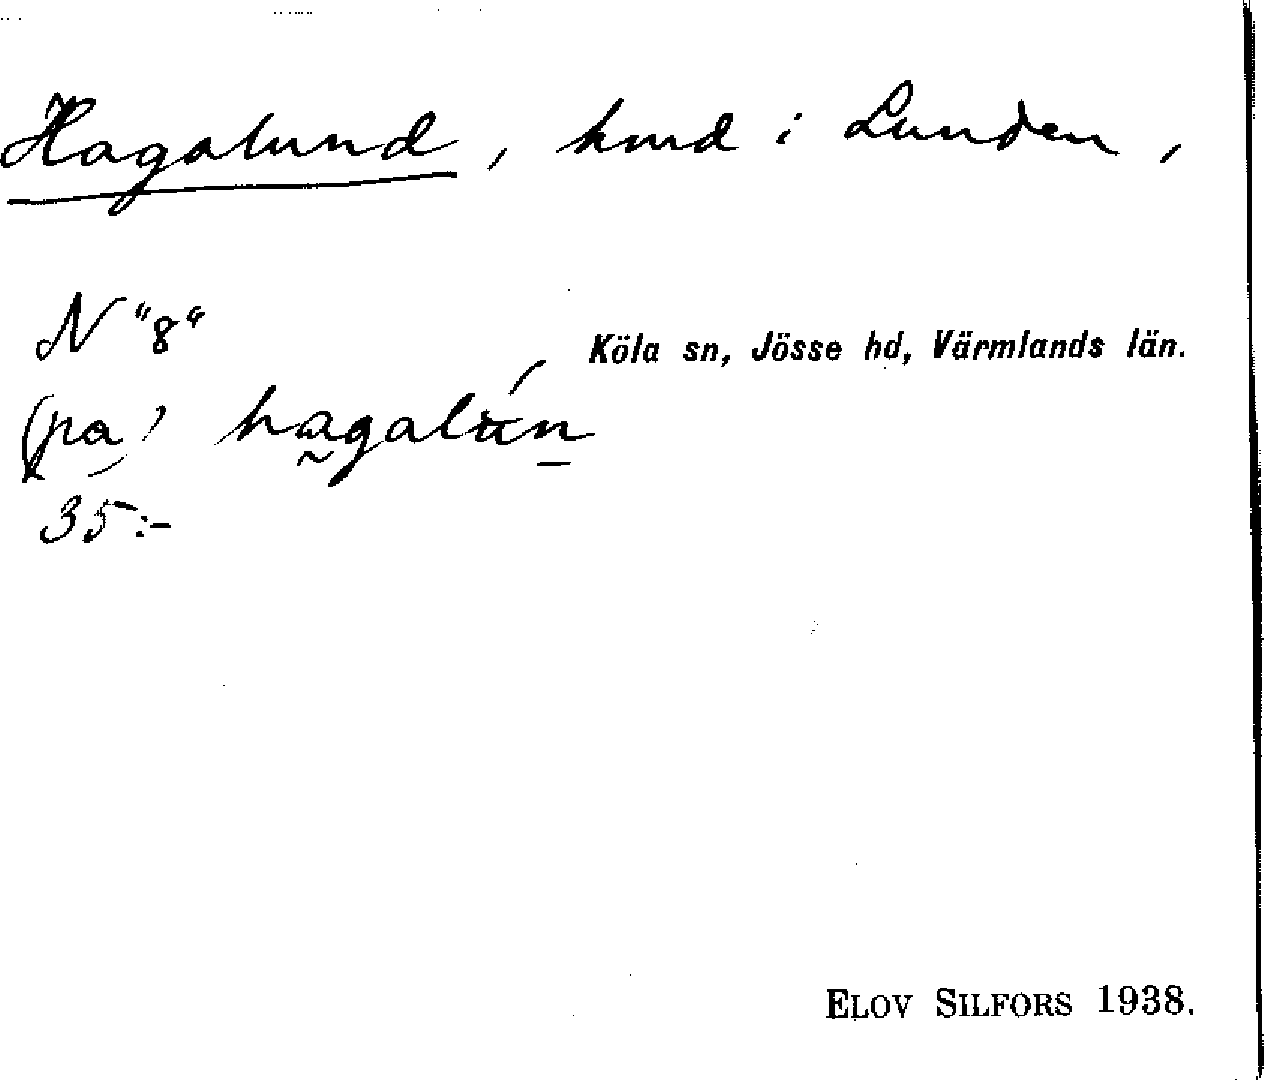 Hagalund, hmd i Lunden,
N "8"
Köla sn, Jösse hd, Värmlands län.
(pa) hagalun
35:-
ELOV SILFORS 1938.